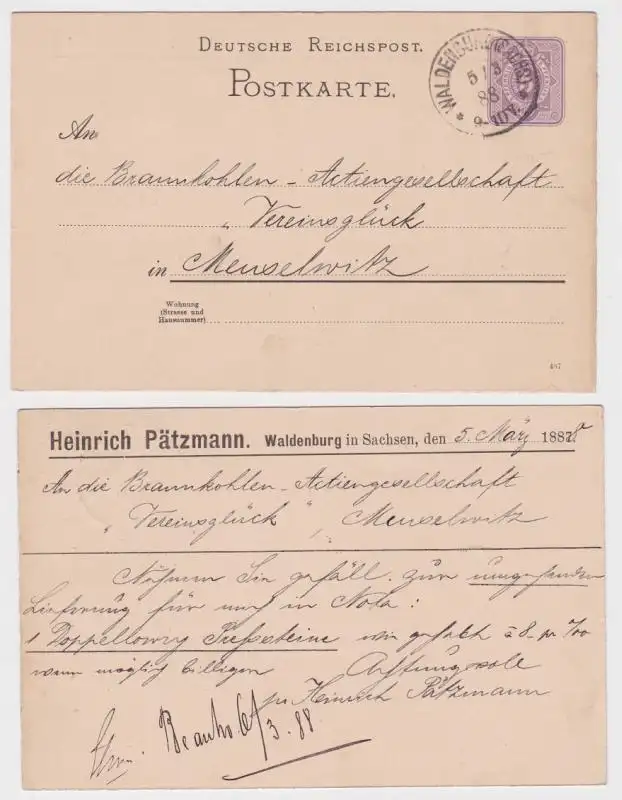 DEUTSCHE REICHSPOST.
POSTKARTE.
WALDENBURG (SACHS)
5 / 3
88
9-10V.
An
die Braunkohlen-Actiengesellschaft
„Vereinsglück
in Meuselwitz
Wohnung
(Strasse und
Hausnummer)
487
Heinrich Pätzmann. Waldenburg in Sachsen, den 5. März 1888
An die Braunkohlen-Actiengesellschaft
„Vereinsglück“, Meuselwitz
Nehmen Sie gefäll. zur umgehenden
Lieferung für mich in Nota:
1 Doppellowry Preßsteine wie gehabt à 8. pr 700
wenn möglich billigen
Achtungsvoll
pr Heinrich Pätzmann
6/3. 88